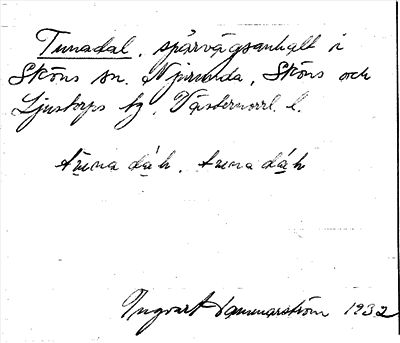 Tunadal, spårvägsanhalt i
Sköns sn. Njurunda, Sköns och
Ljustorps tg. Västernorrl. l.
tuna dáh. tuna dáh
Ingvart Hammarström 1932